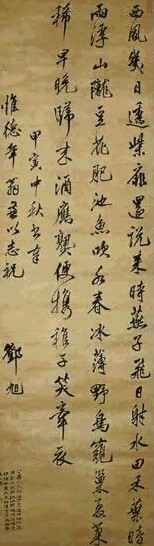 西風幾日透柴扉還說來時燕子飛日射水田禾葉
雨浮山隴豆花肥池魚吹水春冰薄野鳥窺巢葉
稀早晚歸來酒應熟便攜稚子笑牽衣
甲寅中秋書奉
惟德年翁以志祝
鄧旭